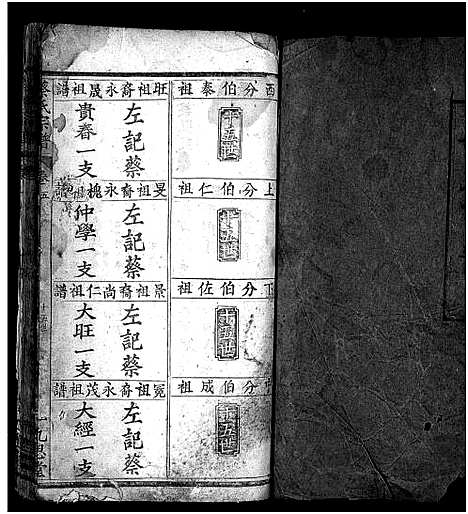 分伯泰祖
十五世
旺祖裔永晟祖譜
左記蔡
貴春一支
上分伯仁祖
十五世
旻祖裔永槐祖
左記蔡
仲學一支
下分伯佐祖
十五世
景祖裔尚仁祖譜
左記蔡
大旺一支
分伯成祖
十五世
冕祖裔永茂祖譜
左記蔡
大經一支
氏宗譜